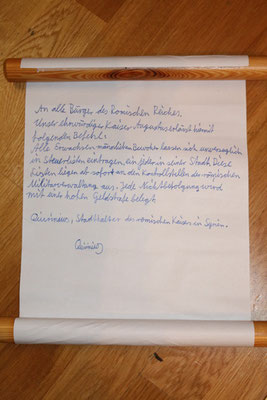 An alle Bürger des Römischen Reiches.
Unser ehrwürdiger Kaiser Augustus erlässt hiermit
folgenden Befehl:
Alle Erwachsen männlichen Bewohner lassen sich unverzüglich
in Steuerlisten eintragen, ein jeder in seiner Stadt. Diese
Listen liegen ab sofort an den Kontrollstellen der römischen
Militärverwaltung aus. Jede Nichtbefolgung wird
mit einer hohen Geldstrafe belegt.
Quirinius, Statthalter des römischen Kaiser in Syrien.
Quirinius